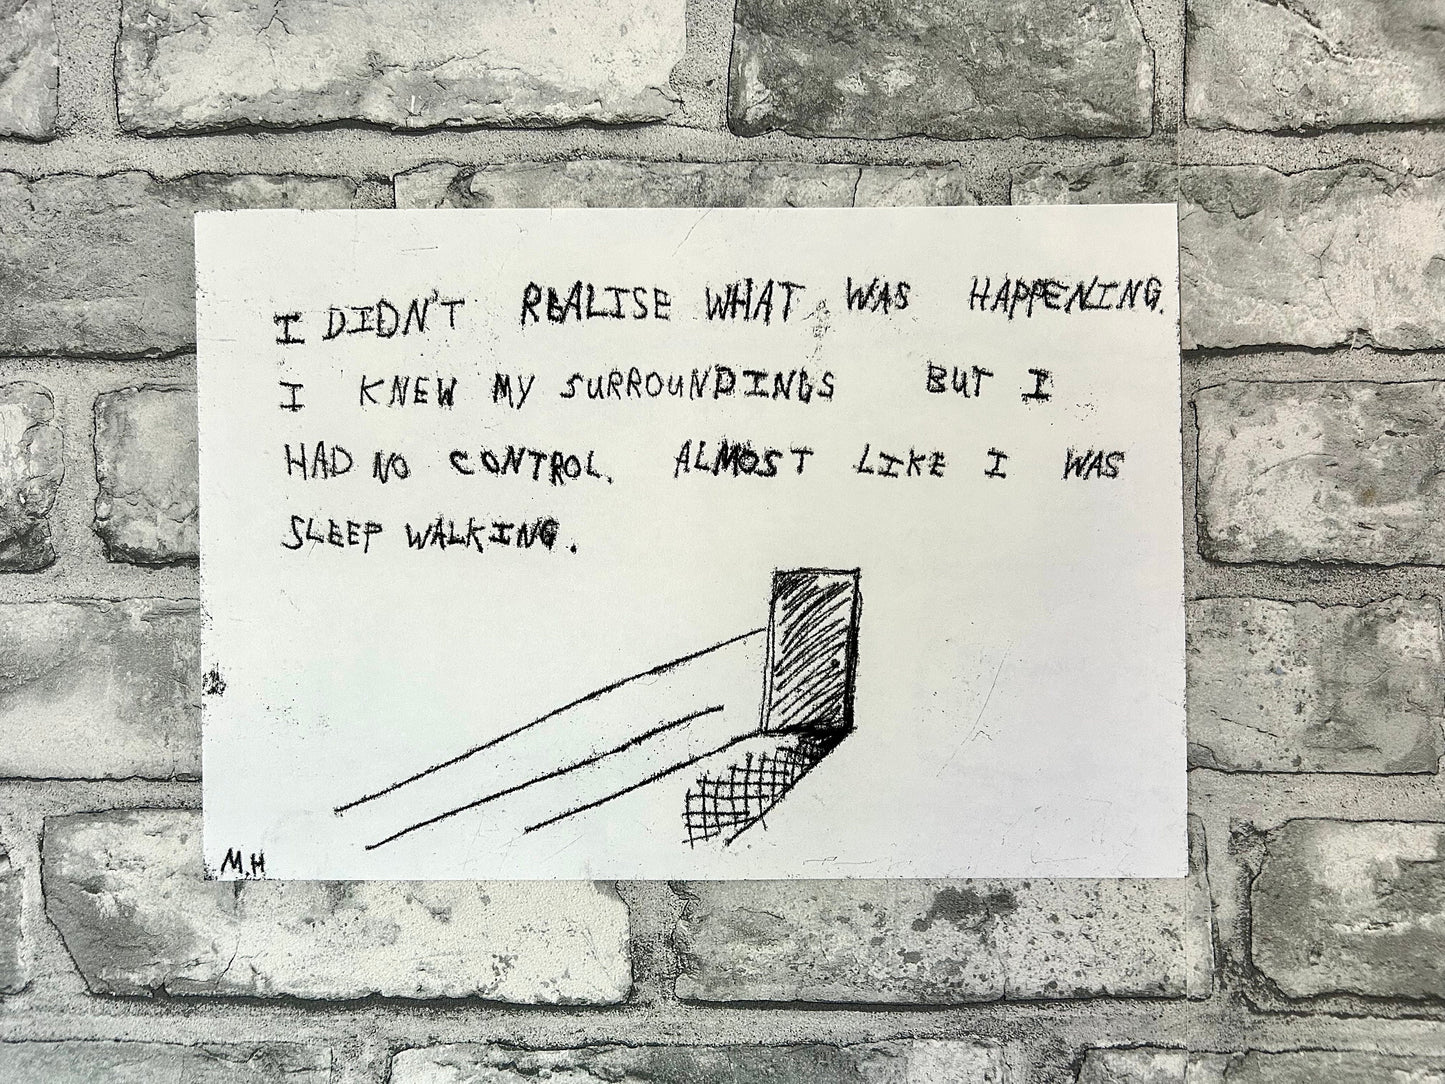 I DIDN'T REALISE WHAT WAS HAPPENING.
I KNEW MY SURROUNDINGS BUT I
HAD NO CONTROL. ALMOST LIKE I WAS
SLEEP WALKING.
M.H